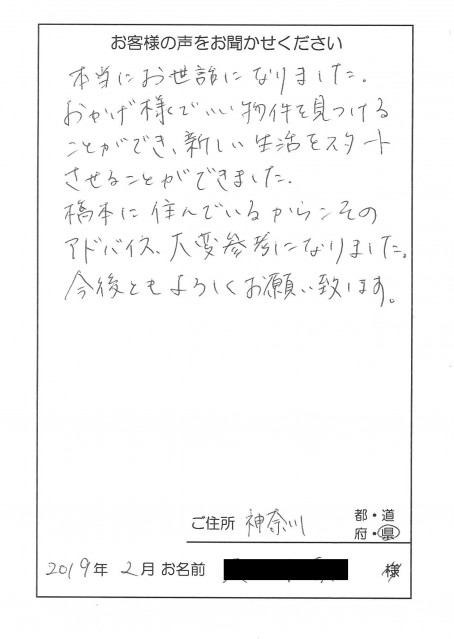 お客様の声をお聞かせください
本当にお世話になりました。
おかげ様でいい物件を見つける
ことができ、新しい生活をスタート
させることができました。
橋本に住んでいるからこその
アドバイス、大変参考になりました。
今後ともよろしくお願い致します。
ご住所 神奈川 都・道府・県
2019年 2月 お名前 様